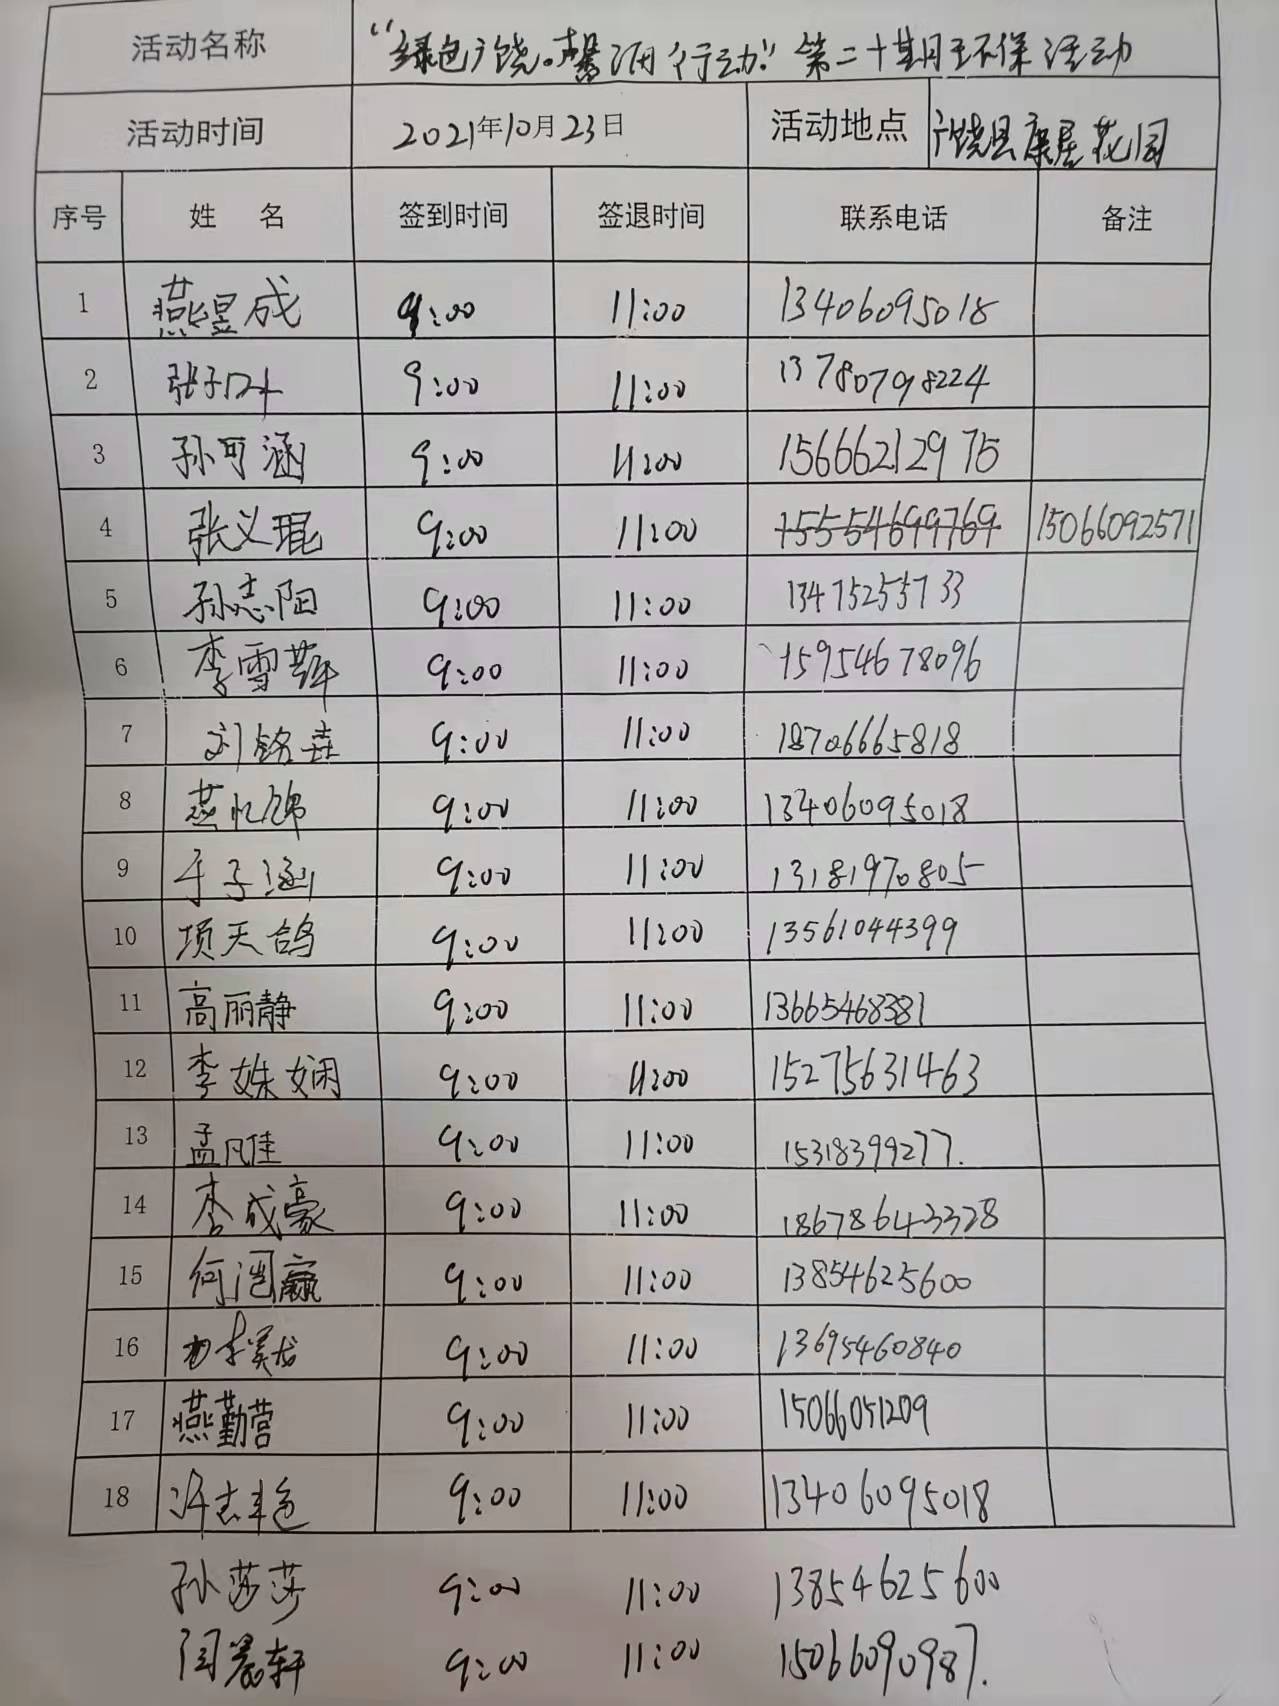 活动名称 “绿色广饶。馨沺行动” 第二十期环保活动
活动时间 2021年10月23日 活动地点 广饶县康居花园
序号 姓 名 签到时间 签退时间 联系电话 备注
1 燕昱成 9:00 11:00 13406095018
2 张子 9:00 11:00 13780798224
3 孙可涵 9:00 11:00 15666212975
4 张义琨 9:00 11:00 15554699769 15066092571
5 孙志阳 9:00 11:00 13475255733
6 李雪 9:00 11:00 15954678096
7 刘铭垚 9:00 11:00 18706665818
8 燕忆锦 9:00 11:00 13406095018
9 于子涵 9:00 11:00 13181970805
10 项天鸽 9:00 11:00 13561044399
11 高丽静 9:00 11:00 13665468381
12 李姝娴 9:00 11:00 15275631463
13 孟凡佳 9:00 11:00 15318399277.
14 李成豪 9:00 11:00 18678643328
15 何润赢 9:00 11:00 13854625600
16 9:00 11:00 13695460840
17 燕勤营 9:00 11:00 15066051209
18 许志艳 9:00 11:00 13406095018
孙莎莎 9:00 11:00 13854625600
闫晨轩 9:00 11:00 15066090987.